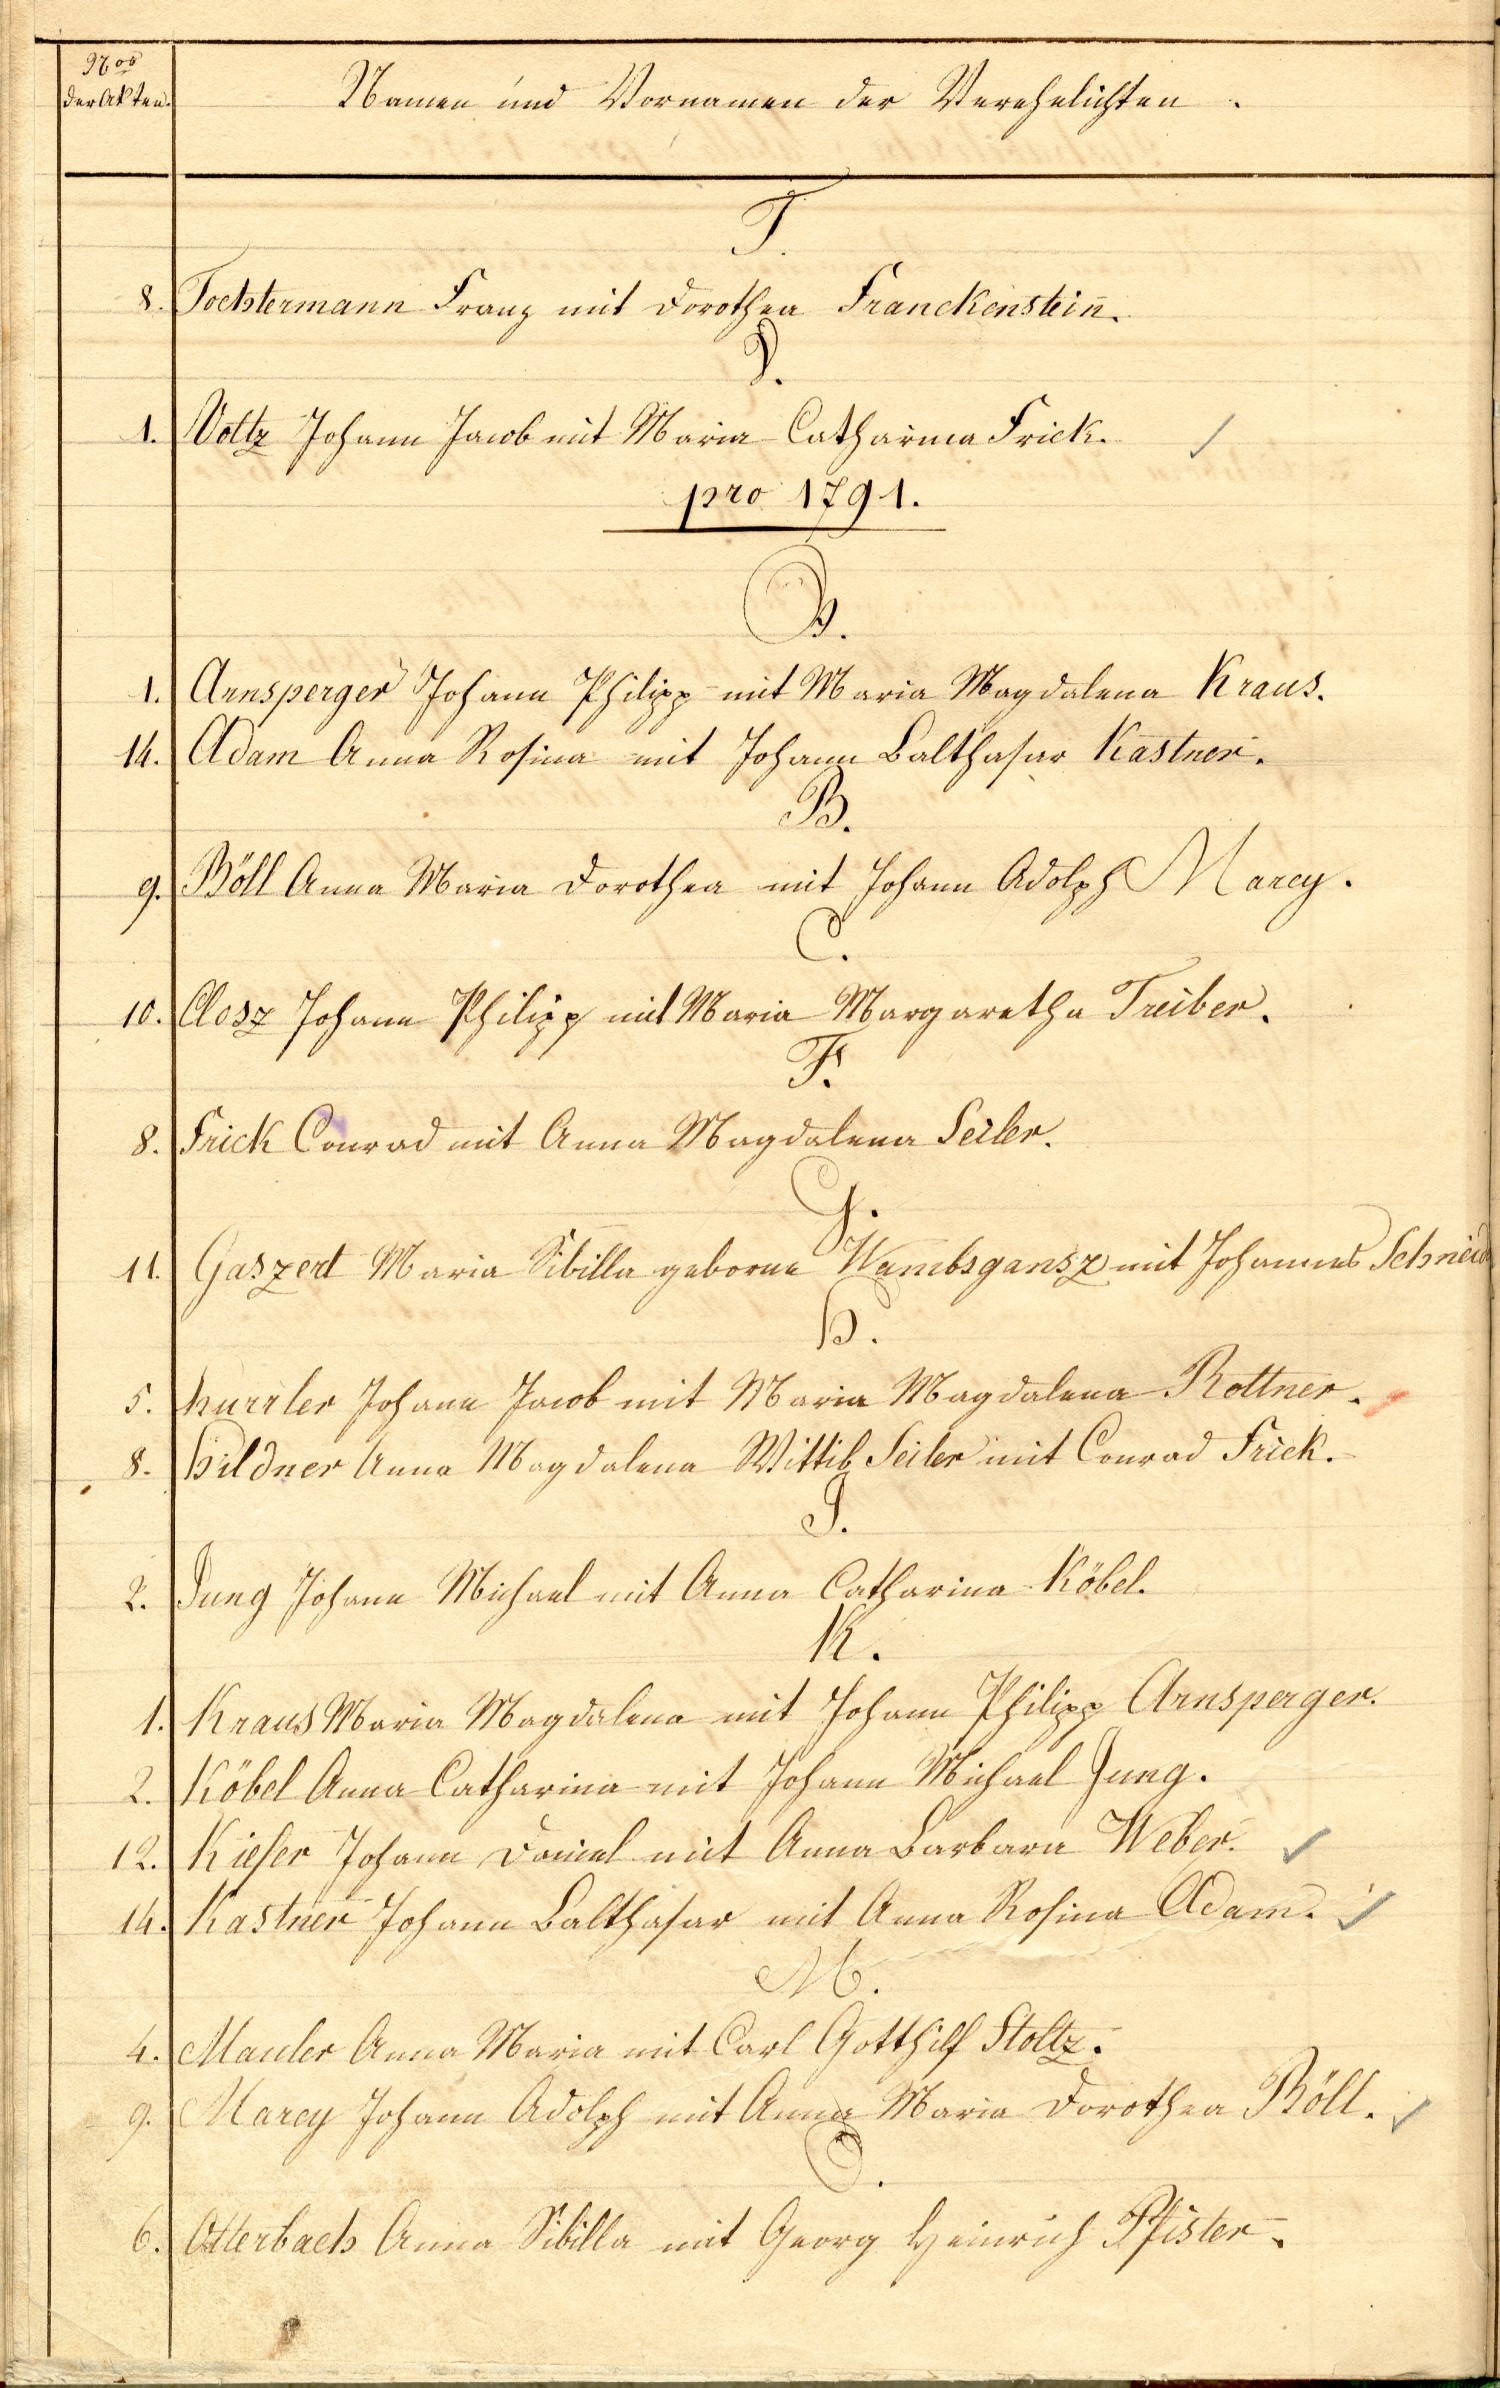 Nos
der Akten.
Namen und Vornamen der Verehelichten.
T.
8. Tochtermann Franz mit Dorothea Franckenstein.
V.
1. Voltz Johann Jacob mit Maria Catharina Frick.
pro 1791.
A.
1. Arnsperger Johann Philipp mit Maria Magdalena Kraus.
14. Adam Anna Rosina mit Johann Balthasar Kastner.
B.
9. Böll Anna Maria Dorothea mit Johann Adolph Marcy.
C.
10. Closz Johann Philipp mit Maria Margaretha Treiber.
F.
8. Frick Conrad mit Anna Magdalena Seiler.
G.
11. Gaszert Maria Sibilla geborne Wambsgansz mit Johannes Schneid
H.
5. Johann Jacob mit Maria Magdalena Rottner.
8. Hildner Anna Magdalena Wittib Seiler mit Conrad Frick.
J.
2. Jung Johann Michael mit Anna Catharina Köbel.
K.
1. Kraus Maria Magdalena mit Johann Philipp Arnsperger.
2. Köbel Anna Catharina mit Johann Michael Jung.
12. Kiefer Johann Daniel mit Anna Barbara Weber.
14. Kastner Johann Balthasar mit Anna Rosina Adam.
M.
4. Mauler Anna Maria mit Carl Gotthilf Stoltz.
9. Marcy Johann Adolph mit Anna Maria Dorothea Böll.
O.
6. Otterbach Anna Sibilla mit Georg Heinrich Pfister.